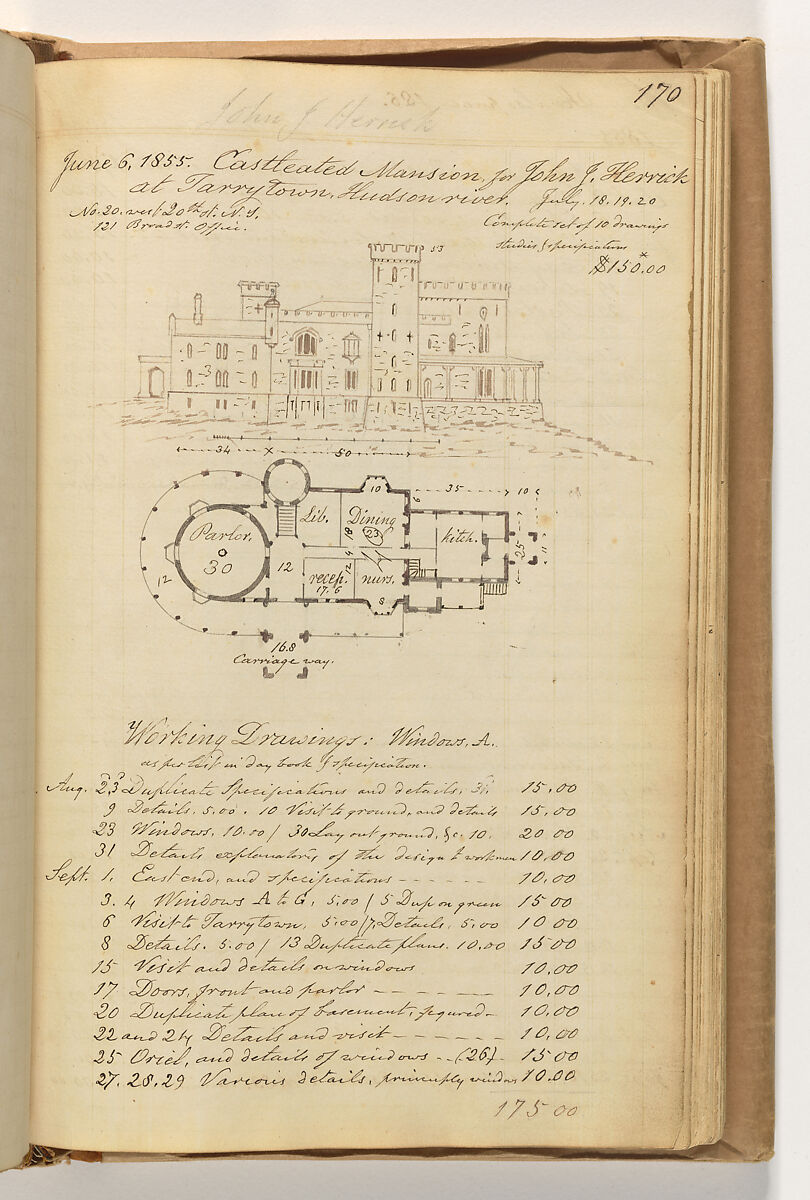 170
John J Herrick
June 6, 1855. Castleated Mansion, for John J. Herrick
at Tarrytown, Hudson river. July. 18. 19. 20
No. 20. west 20th st. N.Y.
121 Broad st. Office.
Complete set of 10 drawings
studies & specifications
$150.00
53
3
34 x 50
35 10
10 6
Parlor.
30
12
Lib.
Dining
23
18
kitch.
25
11
12
4
12
recep.
17.6
nurs.
8
16.8
Carriage way.
Working Drawings: Windows, A.
as per list in day book & specification.
Aug. 2,3 Duplicate Specifications and details, 15.00
9 Details, 5.00. 10 Visit to ground, and details 15.00
23 Windows, 10.00 / 30 Lay out ground, &c. 10. 20 00
31 Details explanatory of the design to workmen 10.00
Sept. 1. East end, and specifications 10.00
3. 4 Windows A to G, 5,00 / 5 Dup on green 15 00
6 Visit to Tarrytown, 5.00 / 7, Details, 5.00 10 00
8 Details. 5.00 / 13 Duplicate plans. 10.00 15 00
15 Visit and details on windows 10.00
17 Doors, front and parlor 10,00
20 Duplicate plan of basement, figured 10.00
22 and 24 Details and visit 10,00
25 Oriel, and details of windows (26) 15 00
27. 28. 29 Various details, principally windows 10.00
175 00